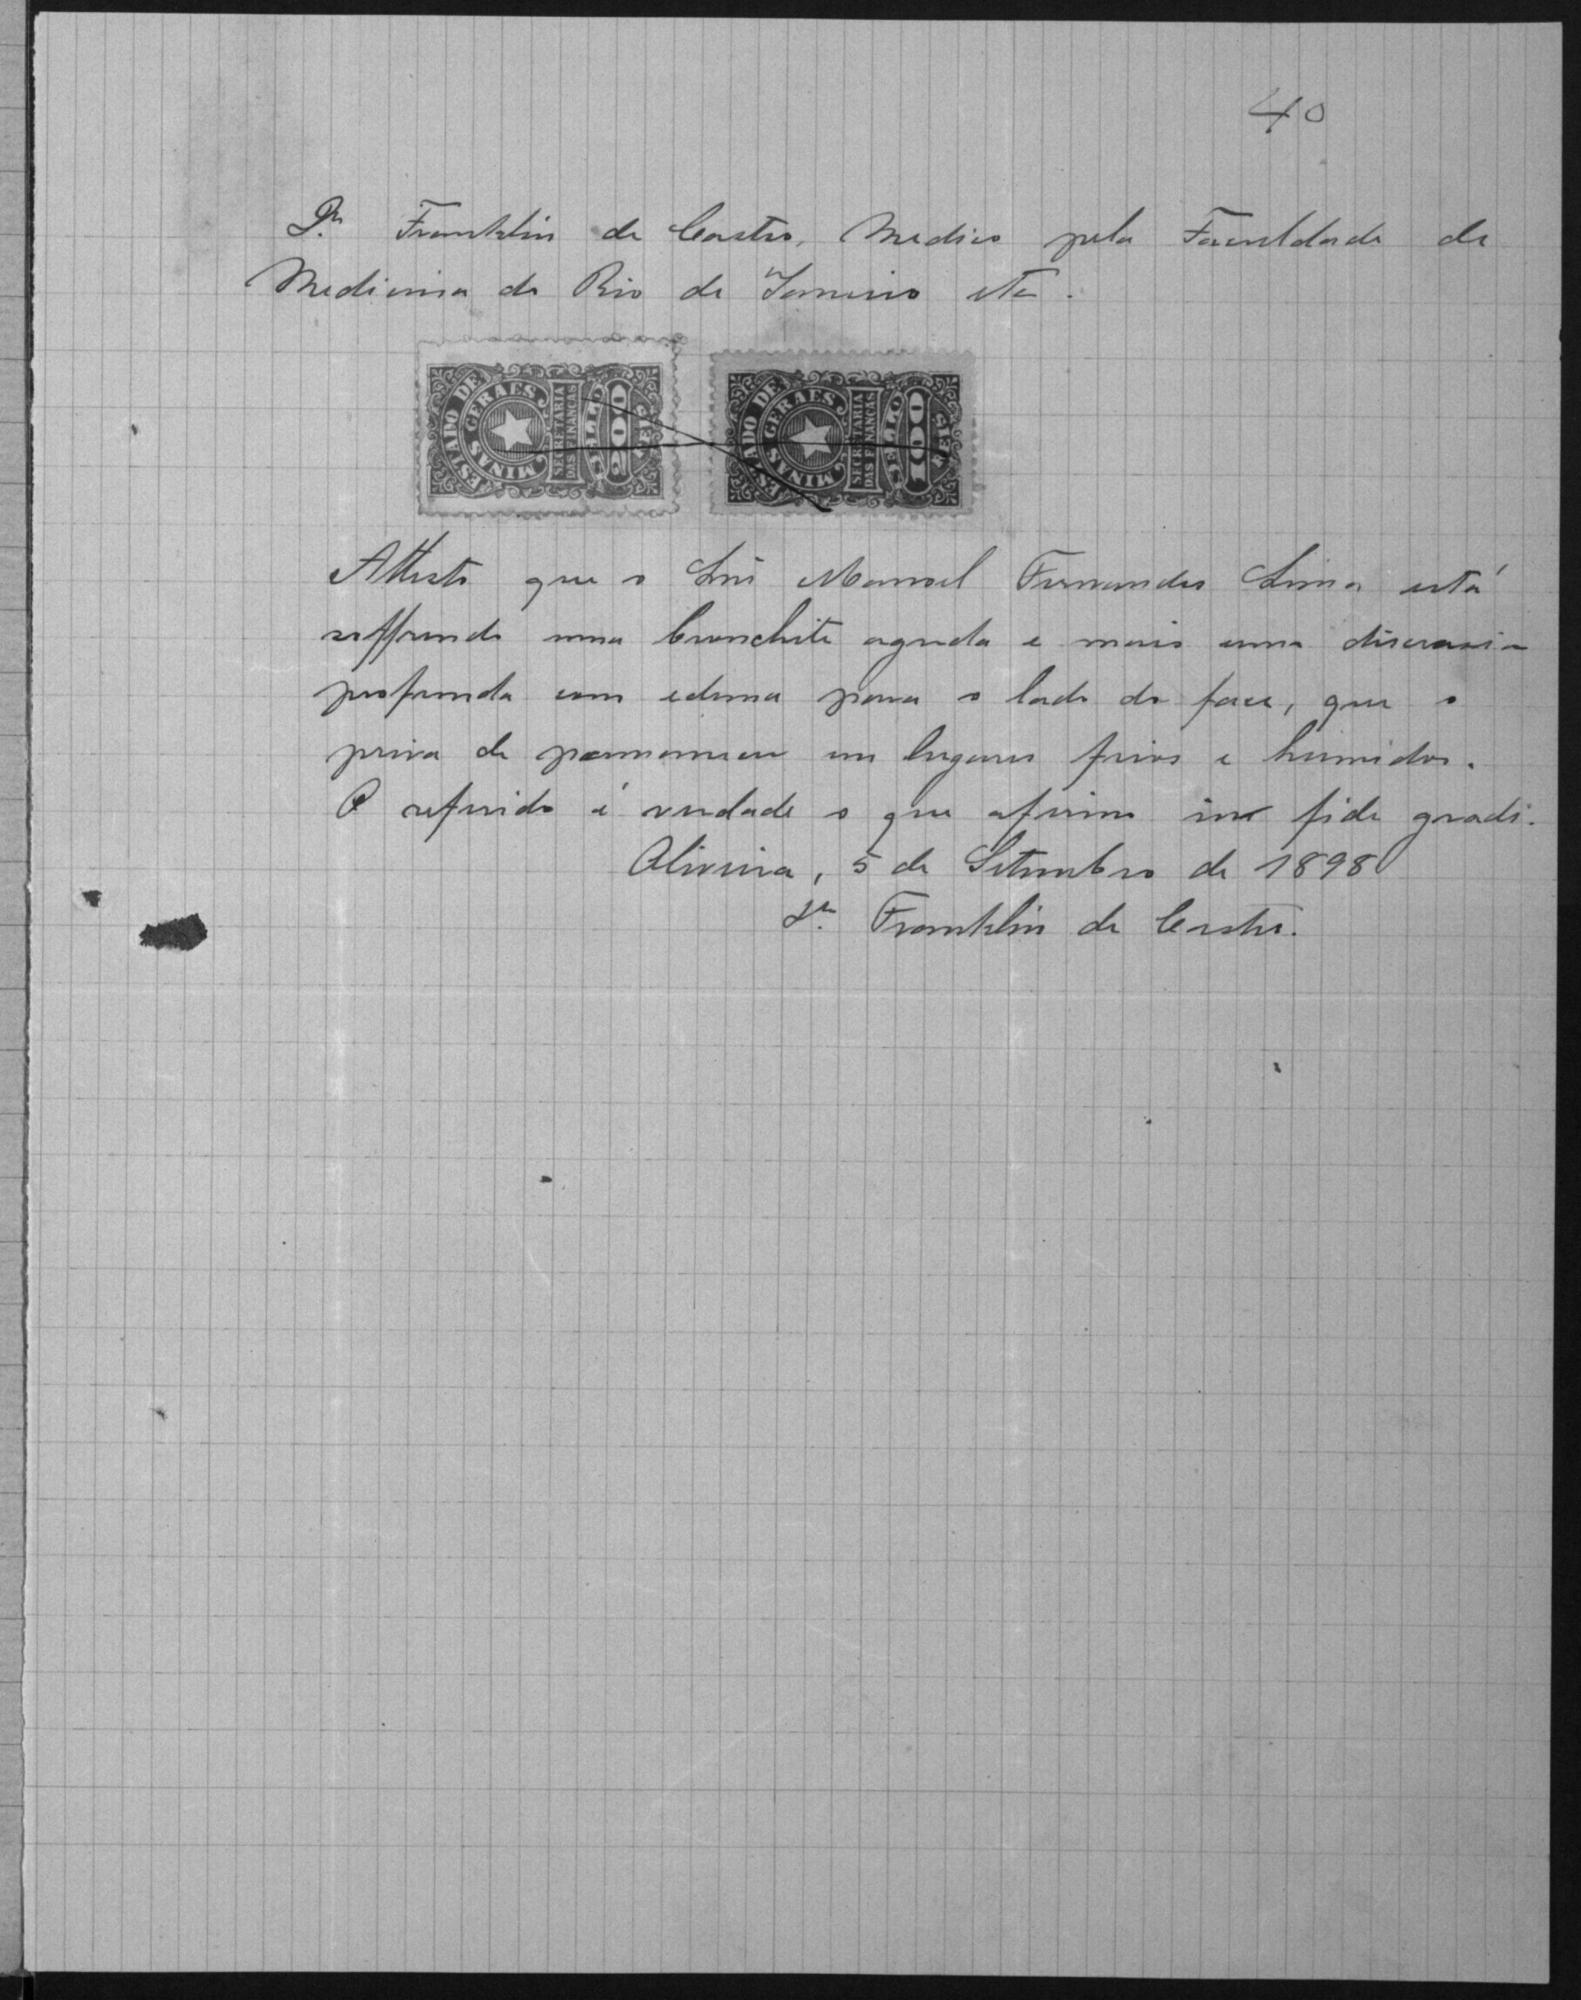 40
Dr. Franklin de Castro, Medico pela Faculdade de
Medicina do Rio de Janeiro etc.
ESTADO DE MINAS GERAES SECRETARIA DAS FINANÇAS SELLO 200 REIS
ESTADO DE MINAS GERAES SECRETARIA DAS FINANÇAS SELLO 100 REIS
Attesto que o Snr Manoel Fernandes Lima está
soffrendo uma bronchite aguda e mais uma discrasia
profunda com edema para o lado da face, que o
priva de permanecer em lugares frios e humidos.
O referido é verdade o que afirmo in fide gradi.
Oliveira, 5 de Setembro de 1898
Dr. Franklin de Castro.